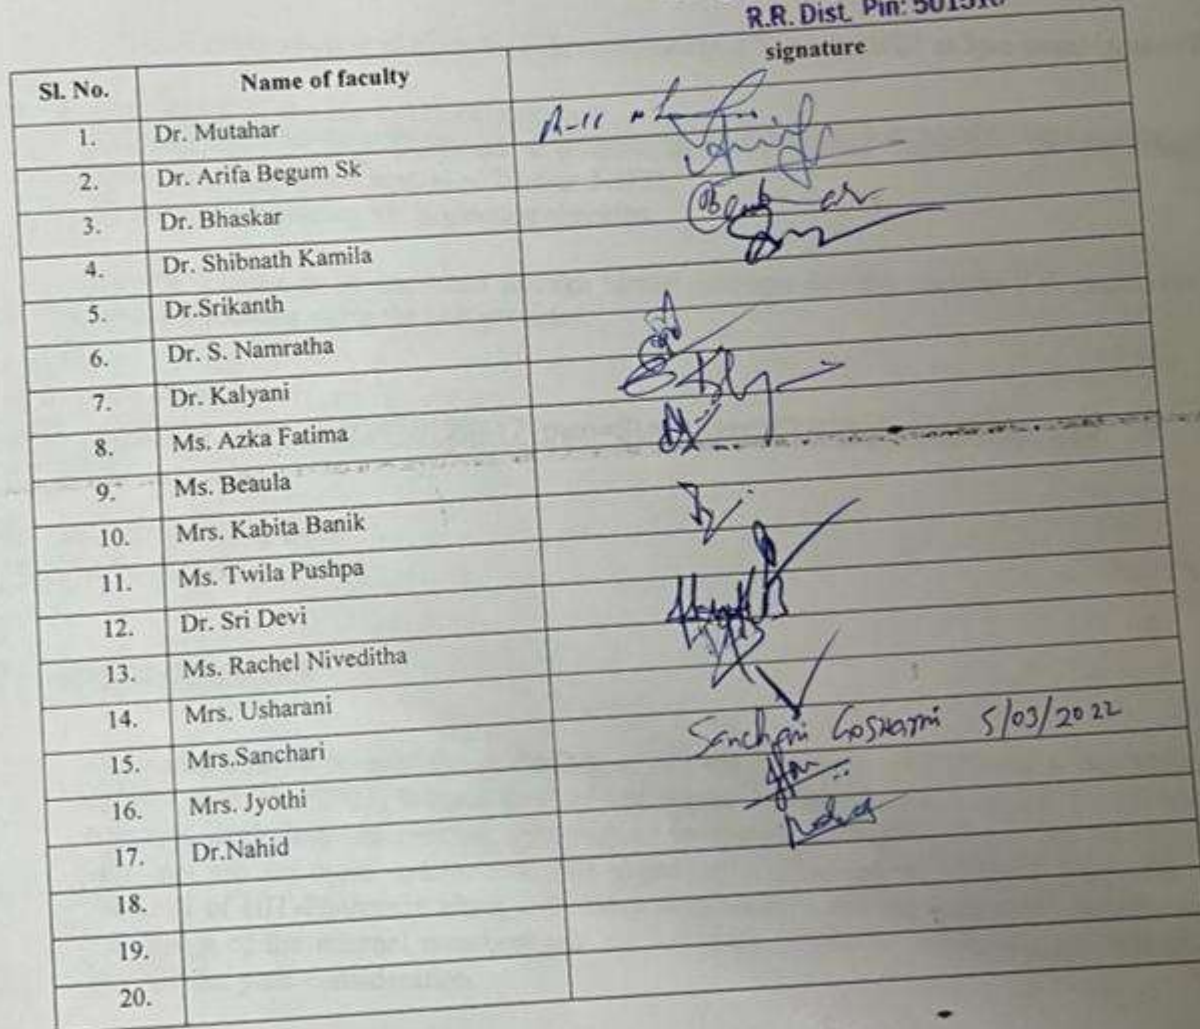 R.R. Dist. Pin:
Sl. No. Name of faculty signature
1. Dr. Mutahar
2. Dr. Arifa Begum Sk
3. Dr. Bhaskar
4. Dr. Shibnath Kamila
5. Dr.Srikanth
6. Dr. S. Namratha
7. Dr. Kalyani
8. Ms. Azka Fatima
9. Ms. Beaula
10. Mrs. Kabita Banik
11. Ms. Twila Pushpa
12. Dr. Sri Devi
13. Ms. Rachel Niveditha
14. Mrs. Usharani
15. Mrs.Sanchari Sanchari Goswami 5/03/2022
16. Mrs. Jyothi
17. Dr.Nahid
18.
19.
20.